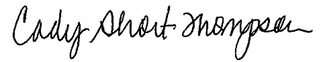 Cady Short-Thompson